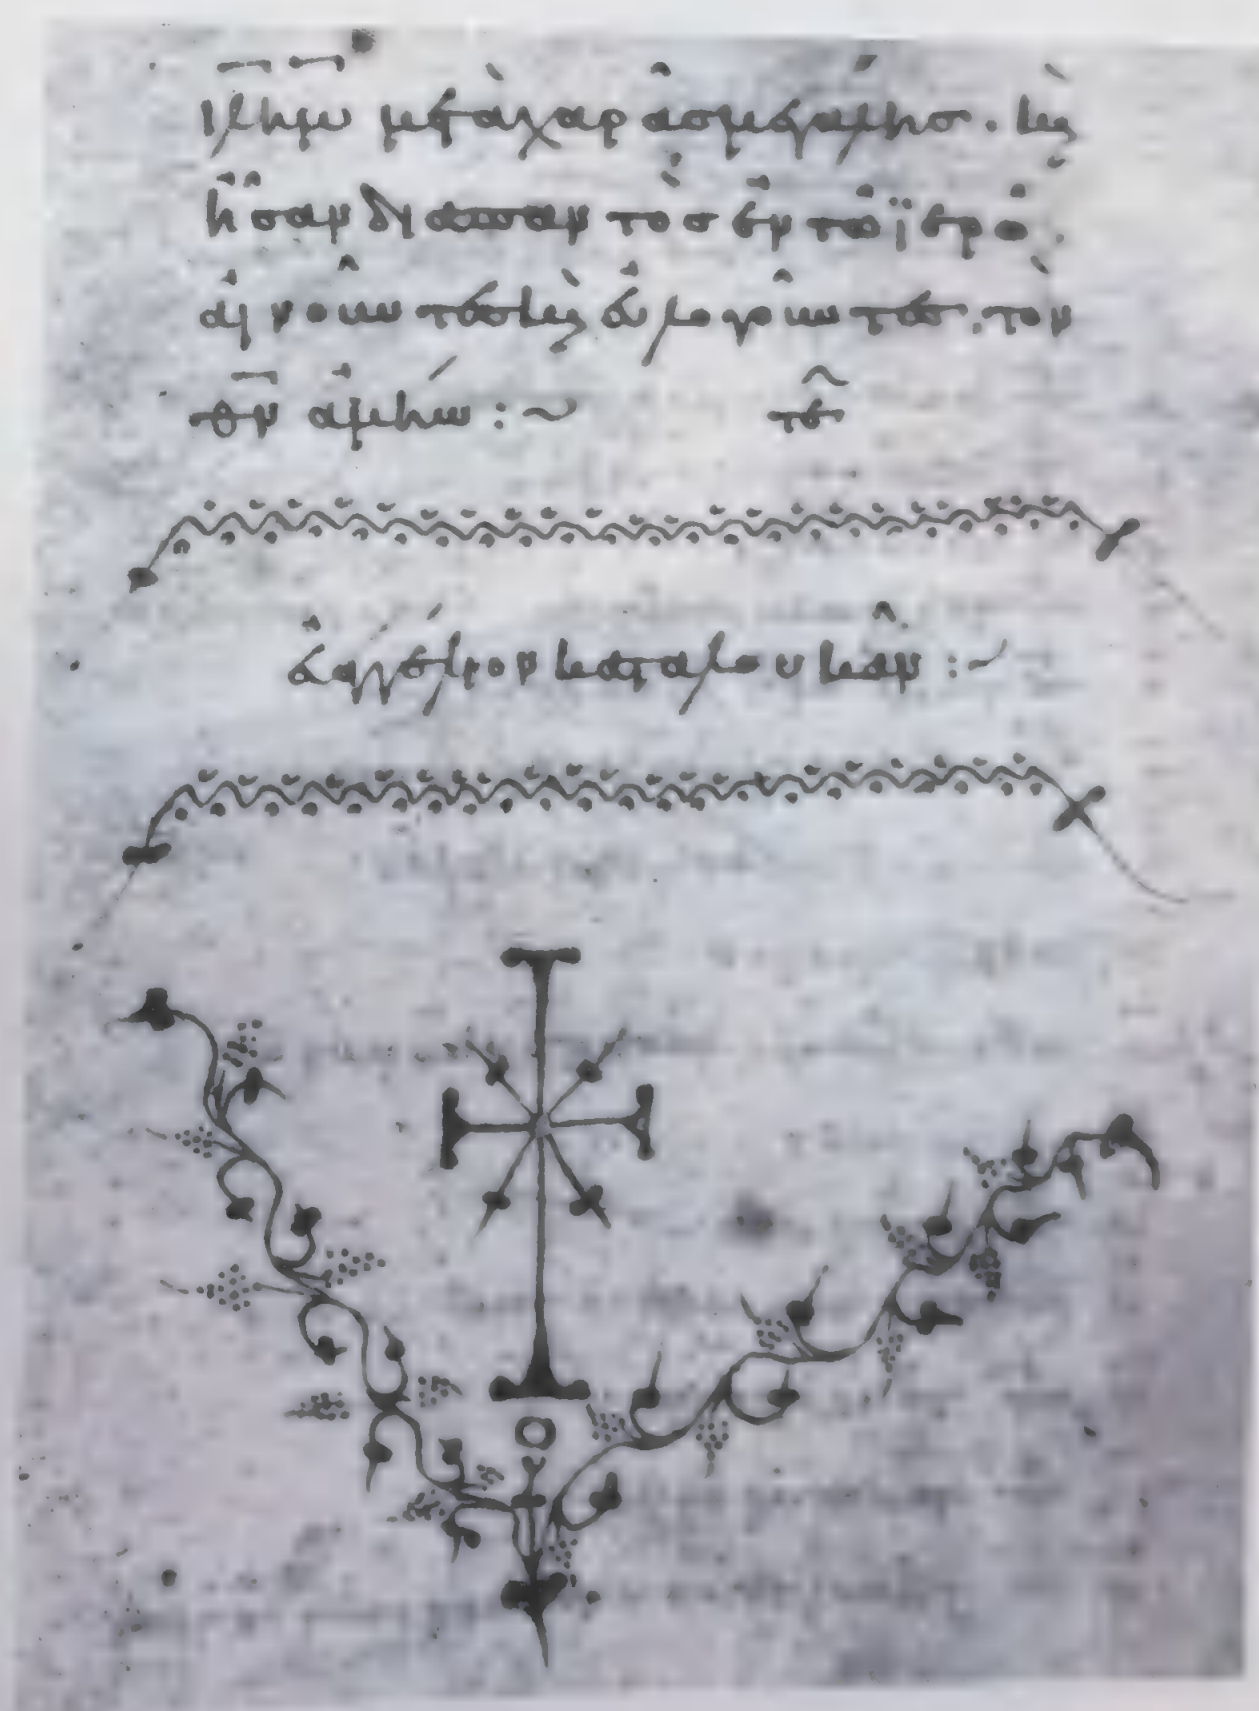 ιλ̅η̅μ̅ μετὰ χαρᾶσ μεγάλησ. κ(αὶ)
ἦσαν διαπαντὸσ ἐν τῶ ϊερῶ.
αἰνοῦντεσ κ(αὶ) ἐυλογοῦντεσ. τὸν
θ̅ν̅ ἀμήν :~ τε̑
ἐυαγγέλιον κατα λουκᾶν :~